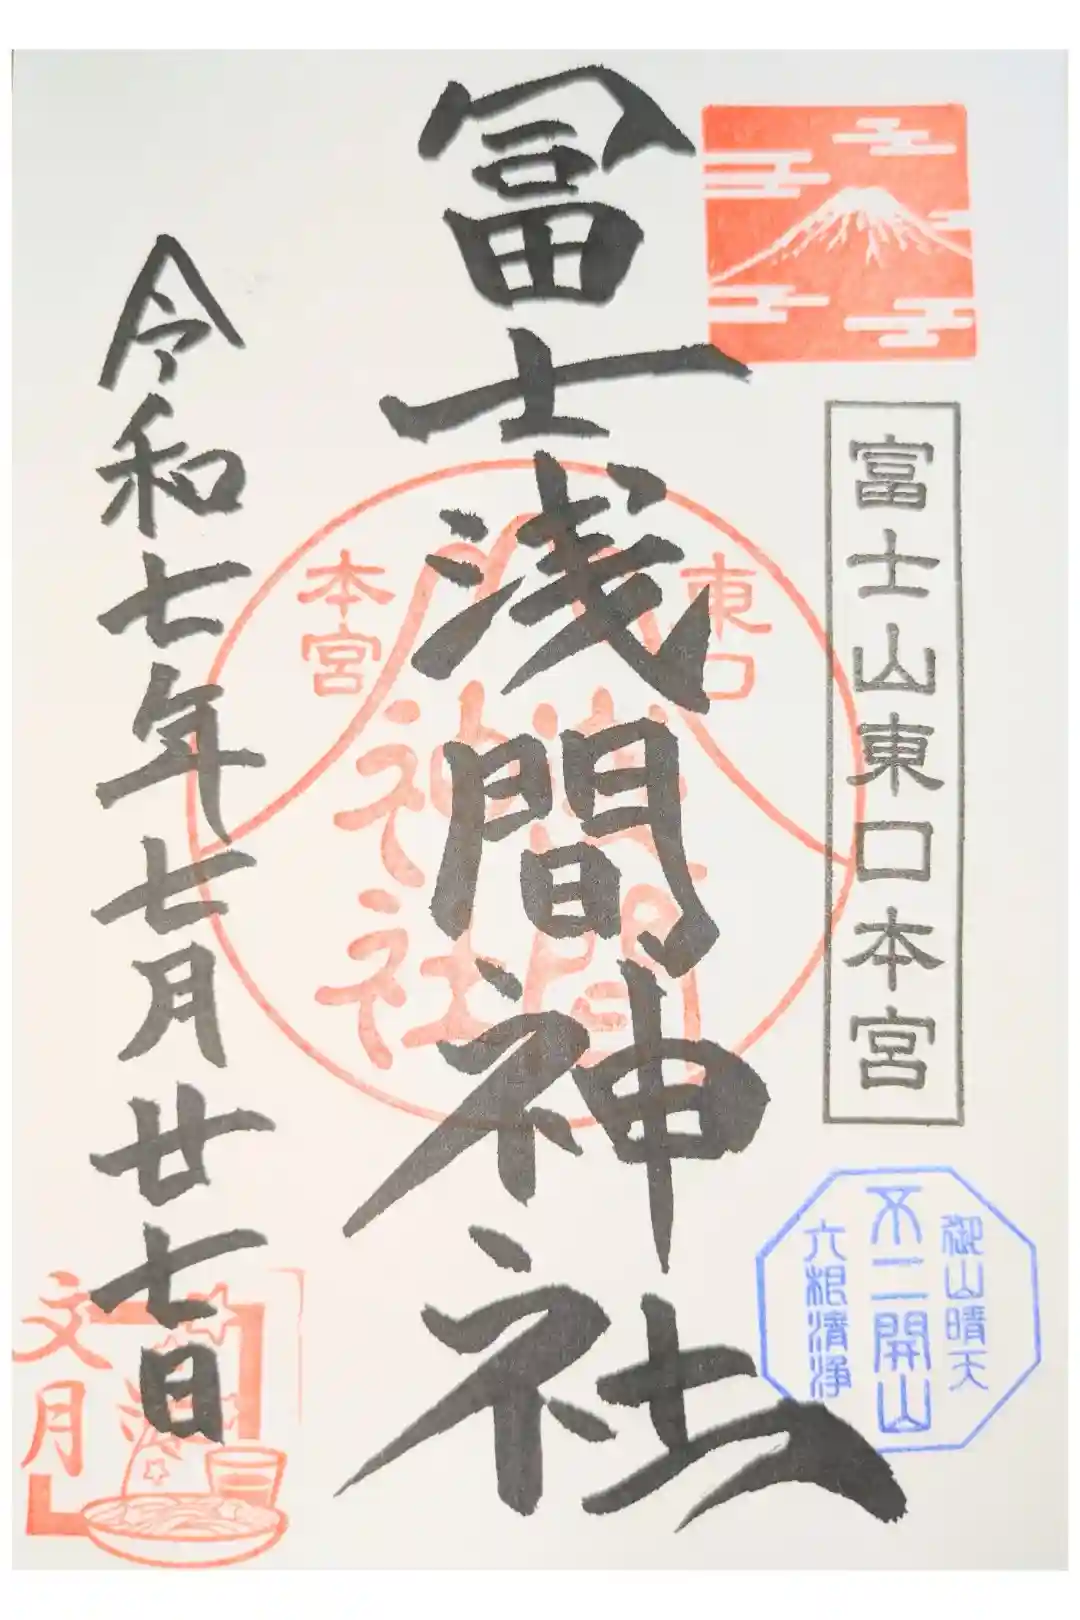 富士山東口本宮
御山晴天
不二開山
六根清浄
冨士浅間神社
東口
本宮
浅間
神社
令和七年七月廿七日
文月